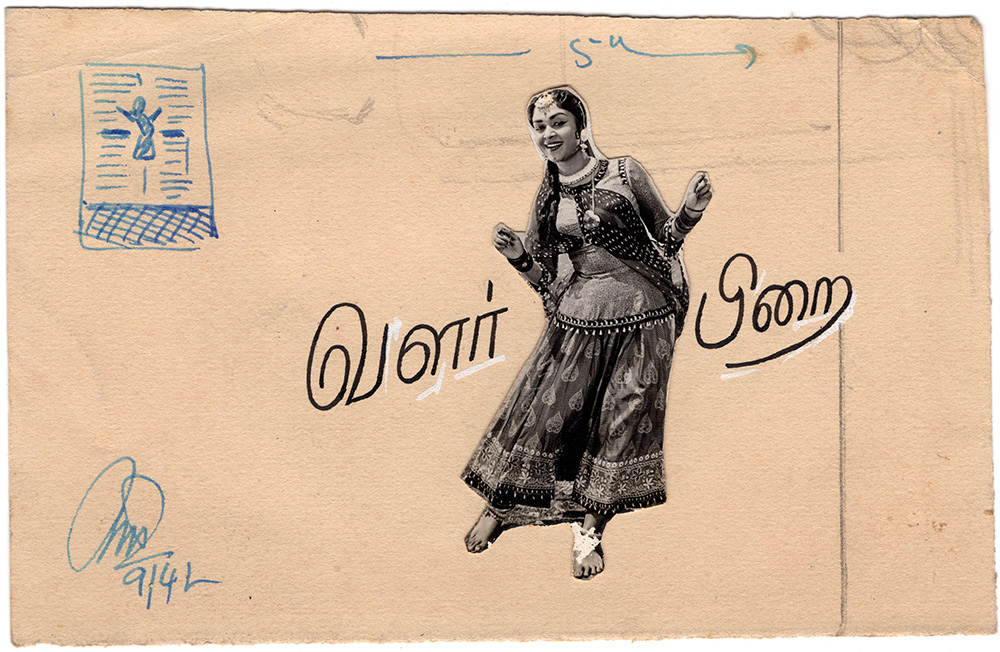 5"
வளர் பிறை
9/42